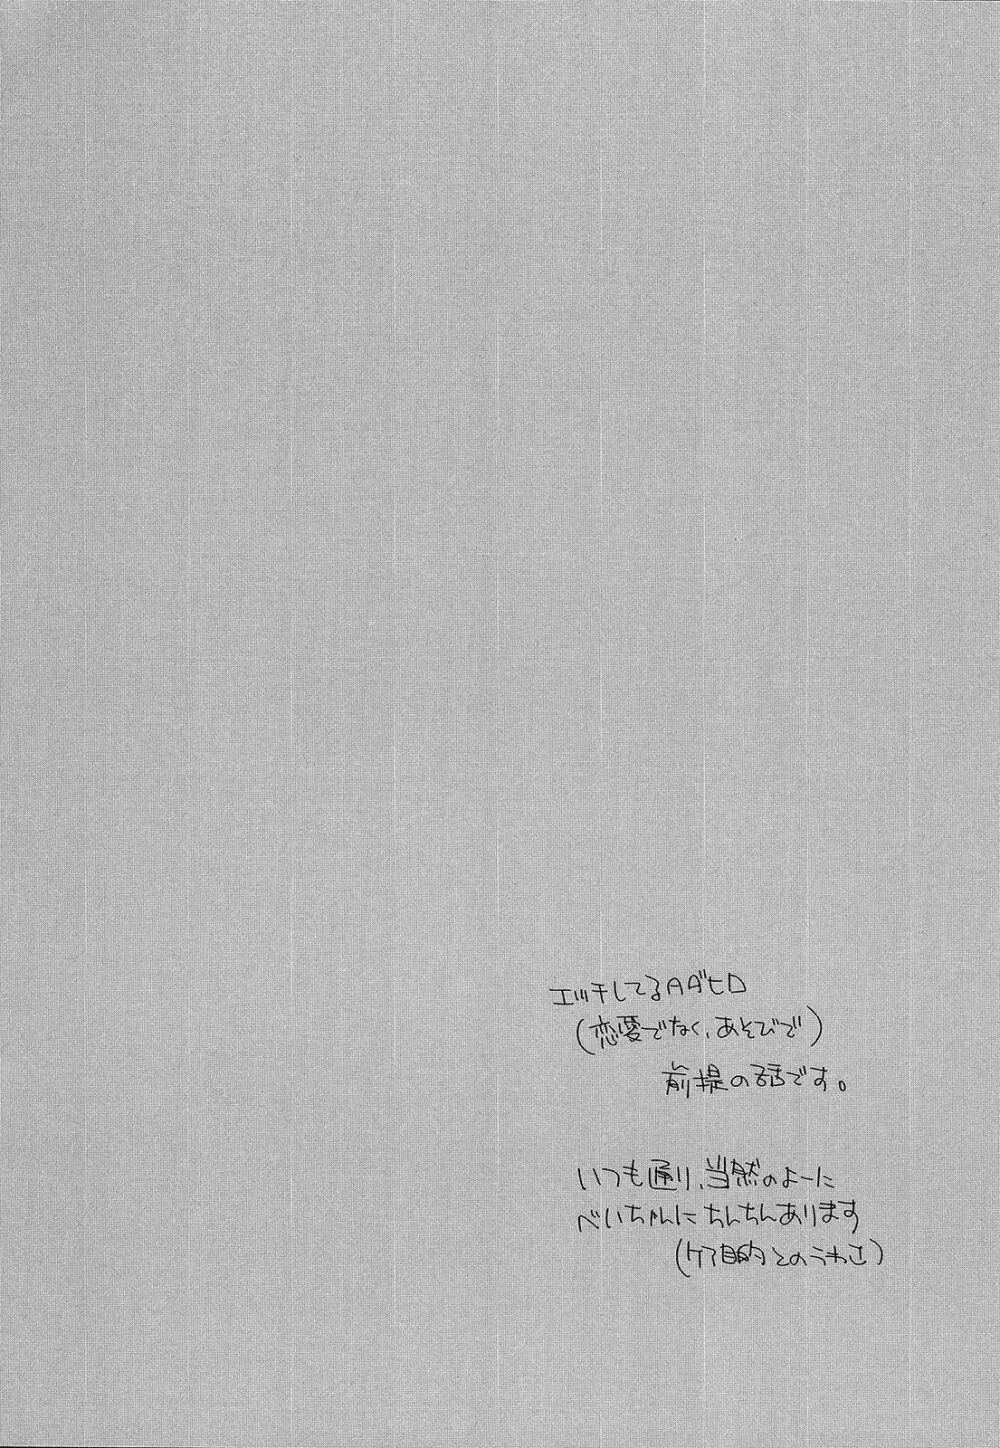 エッチしてるAAﾞヒロ
(恋愛でなく、あそびで)
前提の話です。
いつも通り、当然のよーに
べいちゃんにちんちんあります
(ケア目的とのうわさ)